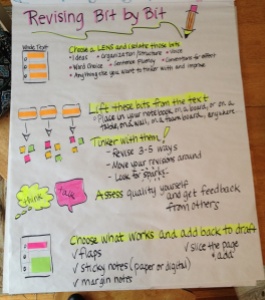 Revising Bit by Bit
Whole Text
Choose a LENS and isolate those bits
• Ideas • organization/structure • Voice
• Word Choice • Sentence Fluency • Conventions for effect
• Anything else you want to tinker with and improve
Lift these bits from the text
• Place in your notebook, on a board, or on a
table, on a wall, on a team board, anywhere
Tinker with them!
- Revise 3-5 ways
- Move your revisions around
- Look for sparks!
think
talk
Assess quality yourself
and get feedback
from others
Choose what works and add back to draft
✓ flaps
✓ slice the page
+ add
✓ sticky notes (paper or digital)
✓ margin notes